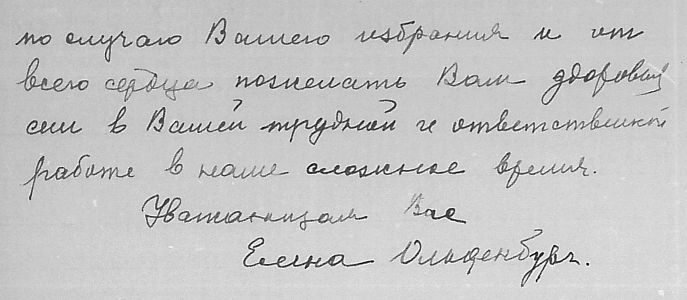 по случаю Вашего избрания и от
всего сердца пожелать Вам здоровья
сил в Вашей трудной и ответственной
работе в наше сложное время.
Уважающая Вас
Елена Ольденбург.